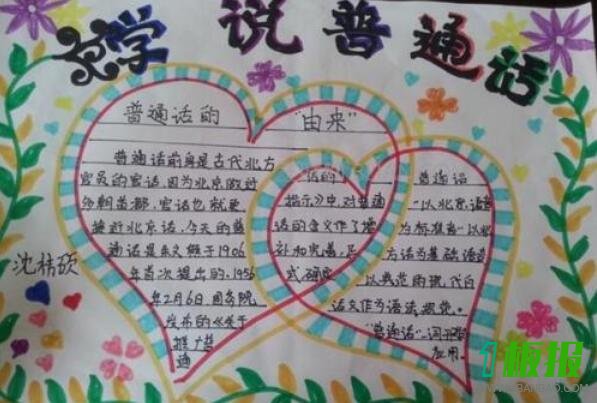 学
说普通话
普通话的"由来"
普通话前身是古代北方
官员的官话,因为北京做过
多朝首都,官话也就更
接近北京话,今天的普
通话是朱文熊于1906
年首次提出的,1956
年2月6日国务院
发布的《关于
推广普
通
话的
指示》中,对普通
话的含义作了增
补和完善,正
式确定
普通话
"以北京语音
为标准音,以北
方话为基础
以典范的现代白
话文作为语法规范。
"普通话"一词开始
应用。
沈桔硕
1板报